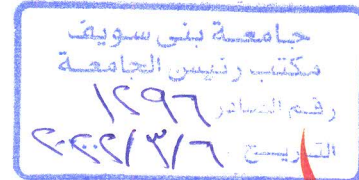 جامعة بنى سويف
مكتب رئيس الجامعة
رقم الصادر ١٢٩٦
التاريخ ٢٠٢٢/٣/٦